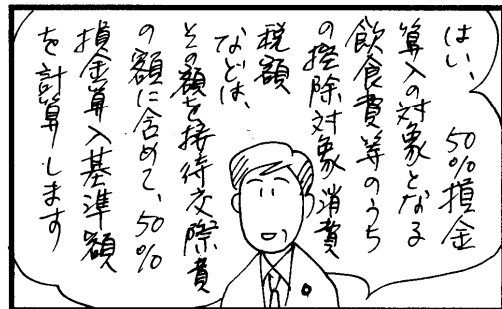 はい、50%損金
算入の対象となる
飲食費等のうち
の控除対象消費
税額
などは、
その額を接待交際費
の額に含めて、50%
損金算入基準額
を計算します